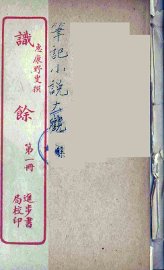 識餘
惠康野叟撰
第一冊
進步書局校印
筆記小說大觀